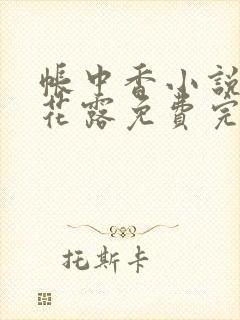 帳中香小說
花露免費完
托斯卡